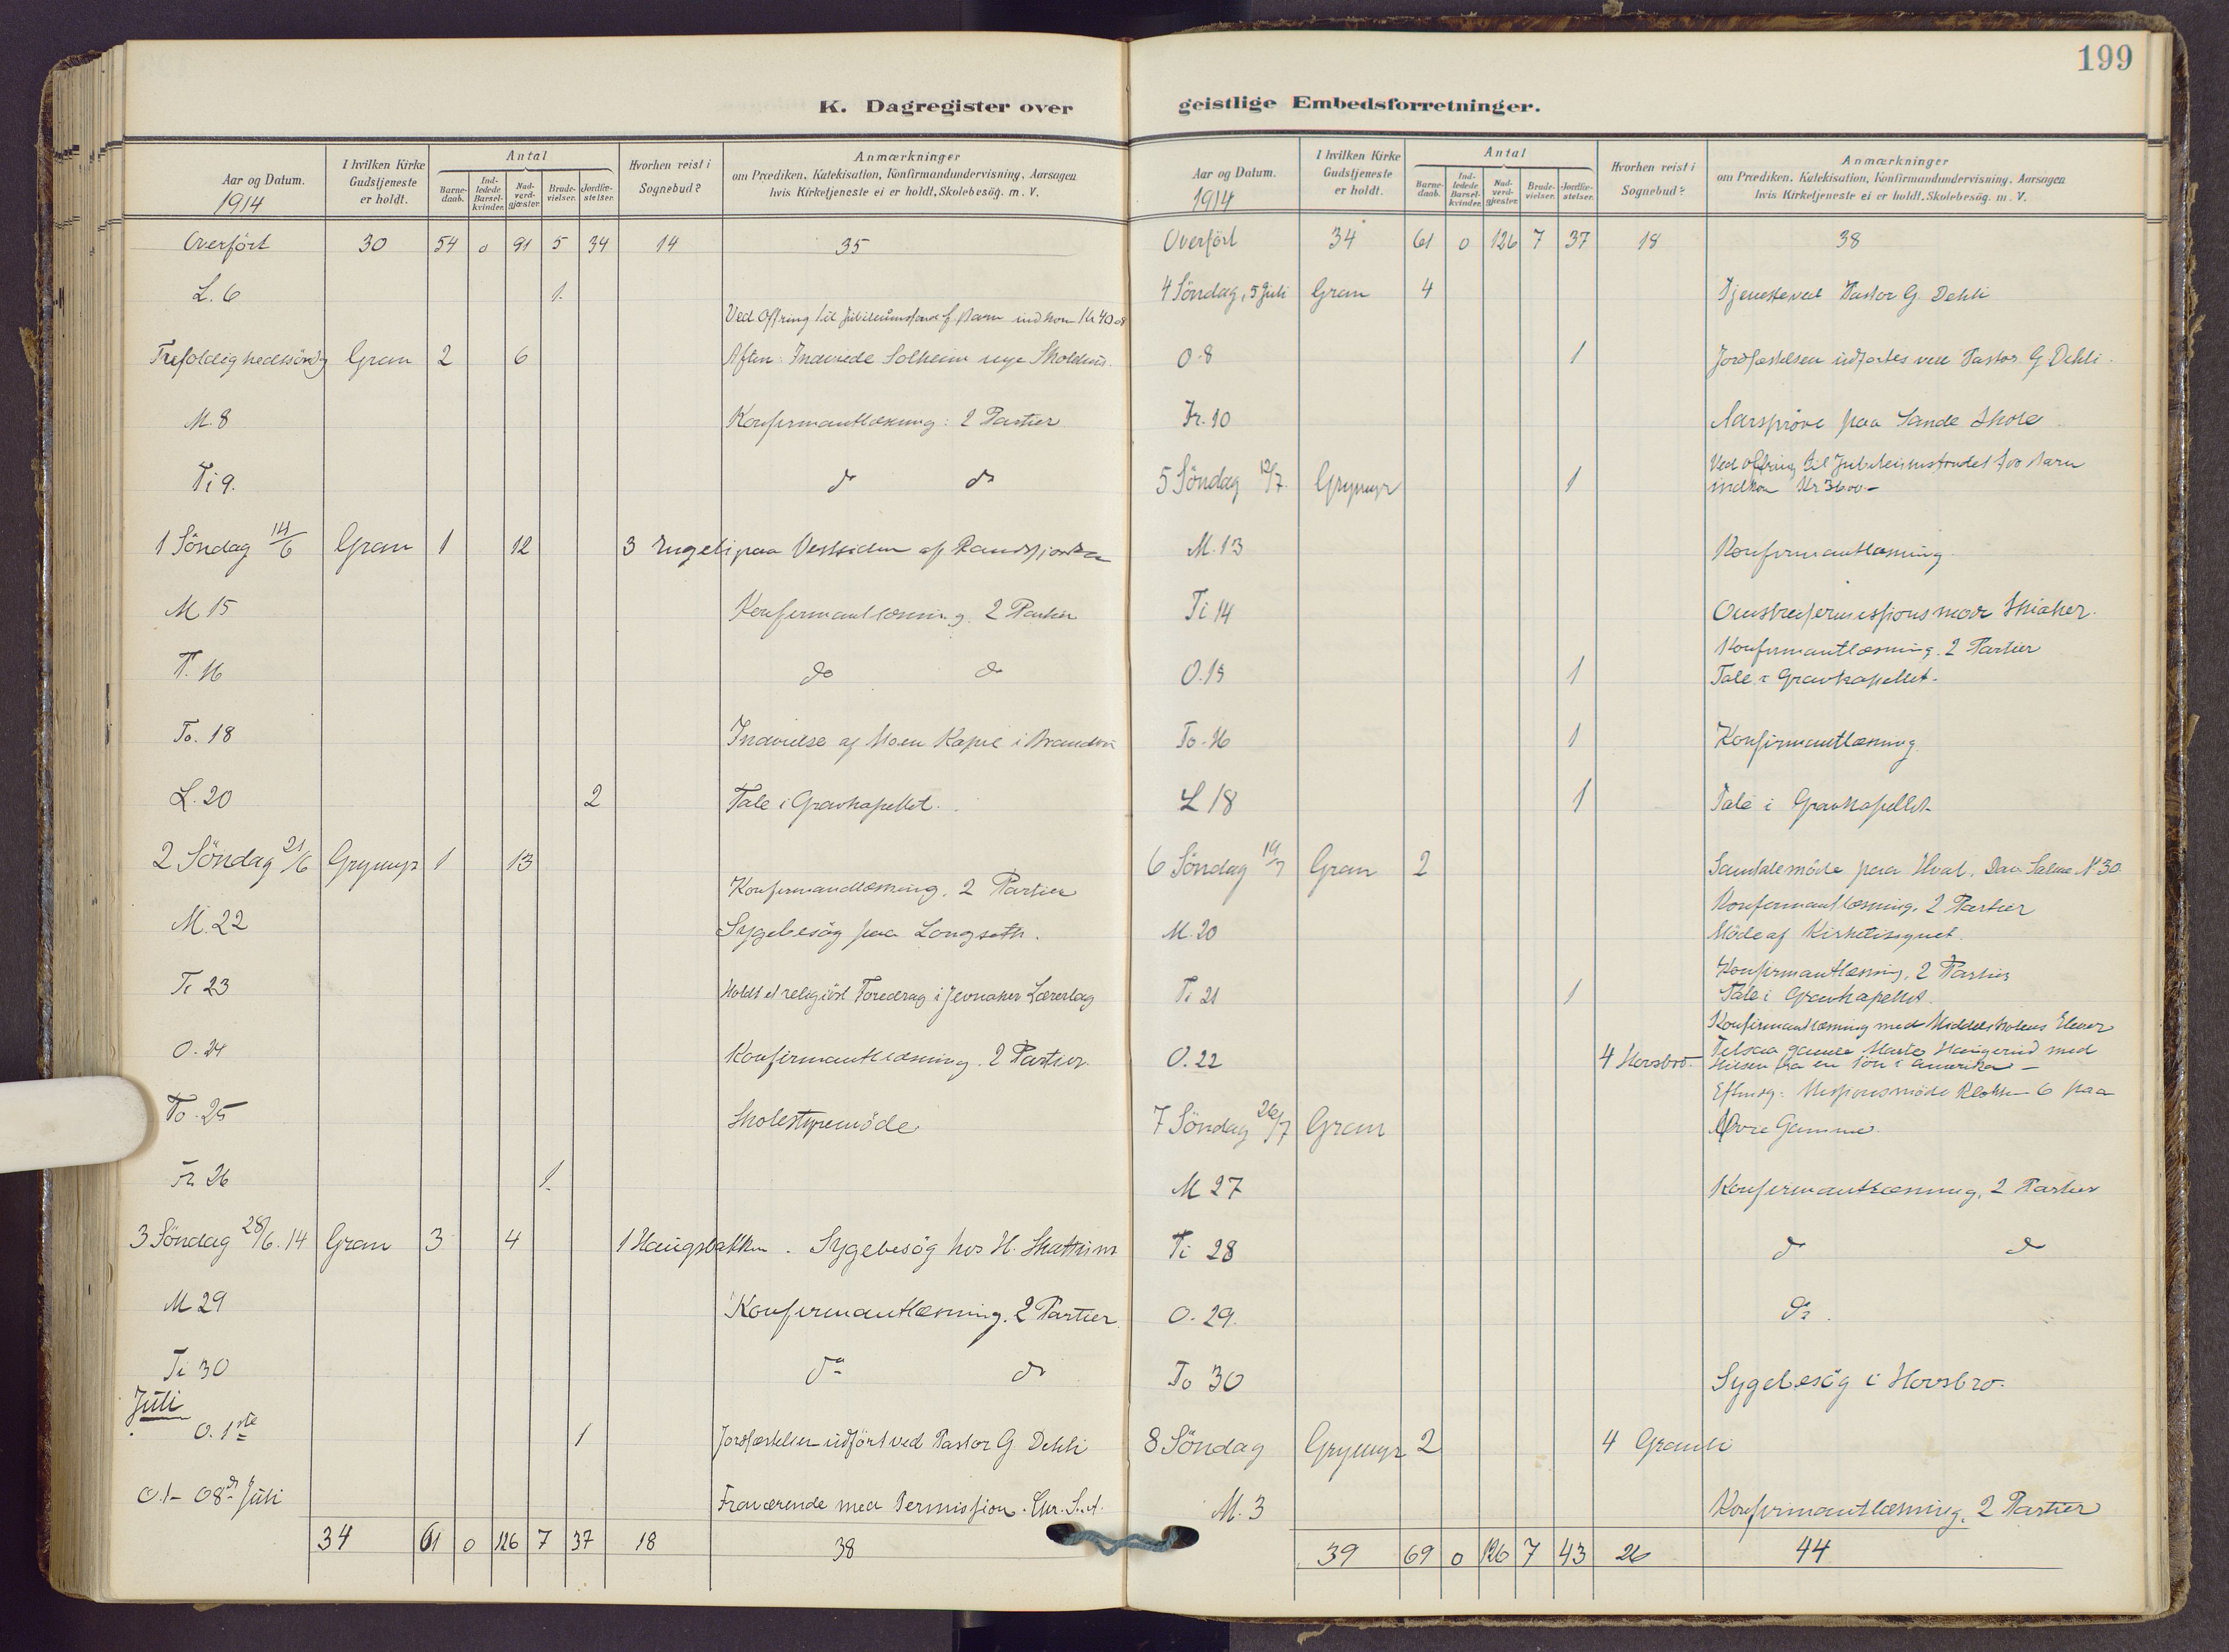 199
K. Dagregister over
Aar og Datum.
1914
I hvilken Kirke Gudstjeneste er holdt.
Antal
Barne-daab.
Ind-ledede Barsel-kvinder.
Nad-verd-gjæster.
Brude-vielser.
Jordfæ-stelser.
Hvorhen reist i Sognebud?
Anmærkninger
om Prædiken, Katekisation, Konfirmandundervisning, Aarsagen
hvis Kirketjeneste ei er holdt, Skolebesög. m. V.
Overfört 30 54 0 91 5 34 14 35
L. 6 1.
Ved Offring til Jubilæumsfond f. Barn indkom Kr 40
Trefoldighedssöndg Gran 2 6 Aften: Indviede Solheim nye Skolehus.
M. 8 Konfirmantlæsning: 2 Partier
Ti 9. do do
1 Söndag 14/6 Gran 1 12 3 Engeli paa Vestsiden af Randsfjorden
M 15 Konfirmantlæsning. 2 Partier
T. 16 do do
To. 18 Indvielse af Moen Kapel i Brandbu
L. 20 2 Tale i Gravkapellet.
2 Söndag 21/6 Grymyr 1 13
Konfirmandlæsning. 2 Partier
M. 22 Sygebesög paa Longseth.
Ti 23 Holdt et religiöst Foredrag i Jevnaker Lærerlag
O. 24 Konfirmantlæsning. 2 Partier.
To. 25 Skolestyremöde
Fr. 26 1.
3 Söndag 28/6. 14 Gran 3 4 1 Haugsbakken. Sygebesög hos H. Skattum
M 29 Konfirmantlæsning. 2 Partier
Ti 30 do do
Juli
O. 1ste 1 Jordfæstelsen udfört ved Pastor G. Dehli
O.1 - O8de Juli Fraværende med Permission. Chr. S.
34 61 0 126 7 37 18 38
geistlige Embedsforretninger.
Aar og Datum.
1914
I hvilken Kirke Gudstjeneste er holdt.
Antal
Barne-daab.
Ind-ledede Barsel-kvinder.
Nad-verd-gjæster.
Brude-vielser.
Jordfæ-stelser.
Hvorhen reist i Sognebud?
Anmærkninger
om Prædiken, Katekisation, Konfirmandundervisning, Aarsagen
hvis Kirketjeneste ei er holdt, Skolebesög. m. V.
Overfört 34 61 0 126 7 37 18 38
4 Söndag, 5 Juli Gran 4 Tjeneste ved Pastor G. Dehli
O. 8 1 Jordfæstelsen udförtes ved Pastor G. Dehli.
Fr. 10 Aarspröve paa Sande Skole.
Ved offring til Jubilæumsfondet for Barn
5 Söndag 12/7 Grymyr 1 indkom Kr 36 00 -
M. 13 Konfirmantlæsning.
Ti 14
Konfirmantlæsning. 2 Partier
O. 15 1 Tale i Gravkapellet.
To. 16 1 Konfirmantlæsning
L 18 1 Tale i Gravkapellet
6 Söndag 19/7 Gran 2 Samtalemöde paa Hval. Dav. Salme No 30.
Konfirmantlæsning. 2 Partier
M. 20 Möde af Kirketilsynet.
Konfirmantlæsning, 2 Partier
Ti 21 1 Tale i Gravkapellet.
Konfirmantlæsning med Middelskolens Elever
O. 22 4 Horsbro. Tilsaa gamle Marte Haugerud med
Hilsen fra en Sön i Amerika -
Eftmdg: Missionsmöde Klokken 6 paa
7 Söndag 26/7 Gran Övre Gamme.
M 27 Konfirmantlæsning, 2 Partier
Ti 28 do do
O. 29. do.
To 30 Sygebesög i Horsbro.
8 Söndag Grymyr 2 4 Granli
M. 3 Konfirmantlæsning. 2 Partier
39 69 0 126 7 43 26 44